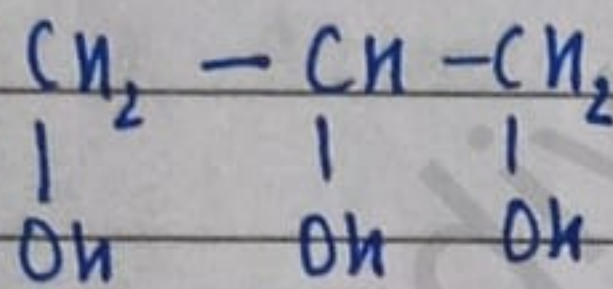 CH₂ – CH – CH₂
| | |
OH OH OH